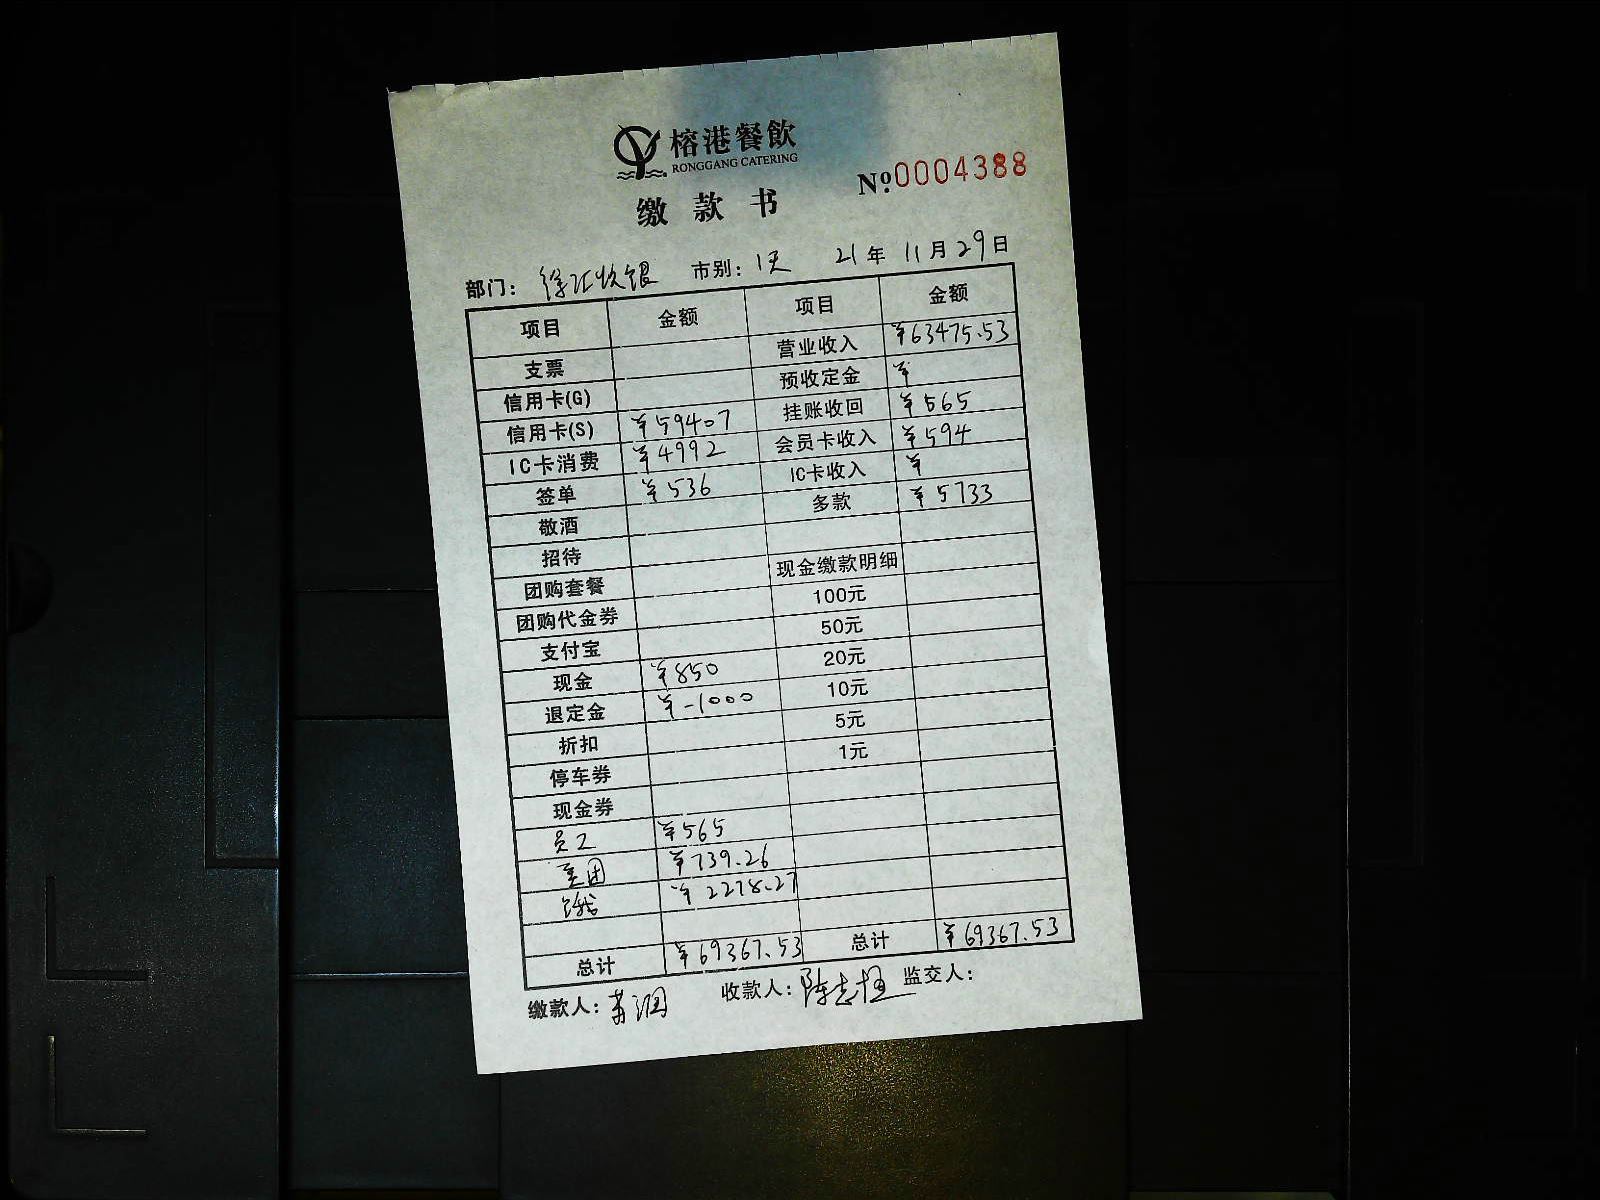 榕港餐飲
RONGGANG CATERING
No.0004388
缴款书
部门：徐汇收银 市别：1天 21年11月29日
项目 金额 项目 金额
支票 营业收入 ¥63475.53
信用卡(G) 预收定金 ¥
信用卡(S) ¥59407 挂账收回 ¥565
IC卡消费 ¥4992 会员卡收入 ¥594
签单 ¥536 IC卡收入 ¥
敬酒 多款 ¥5733
招待
团购套餐 现金缴款明细
团购代金券 100元
支付宝 50元
现金 ¥850 20元
退定金 ¥-1000 10元
折扣 5元
停车券 1元
现金券
员工 ¥565
美团 ¥739.26
饿 ¥2278.27
总计 ¥69367.53 总计 ¥69367.53
缴款人： 收款人：陈志恒 监交人：